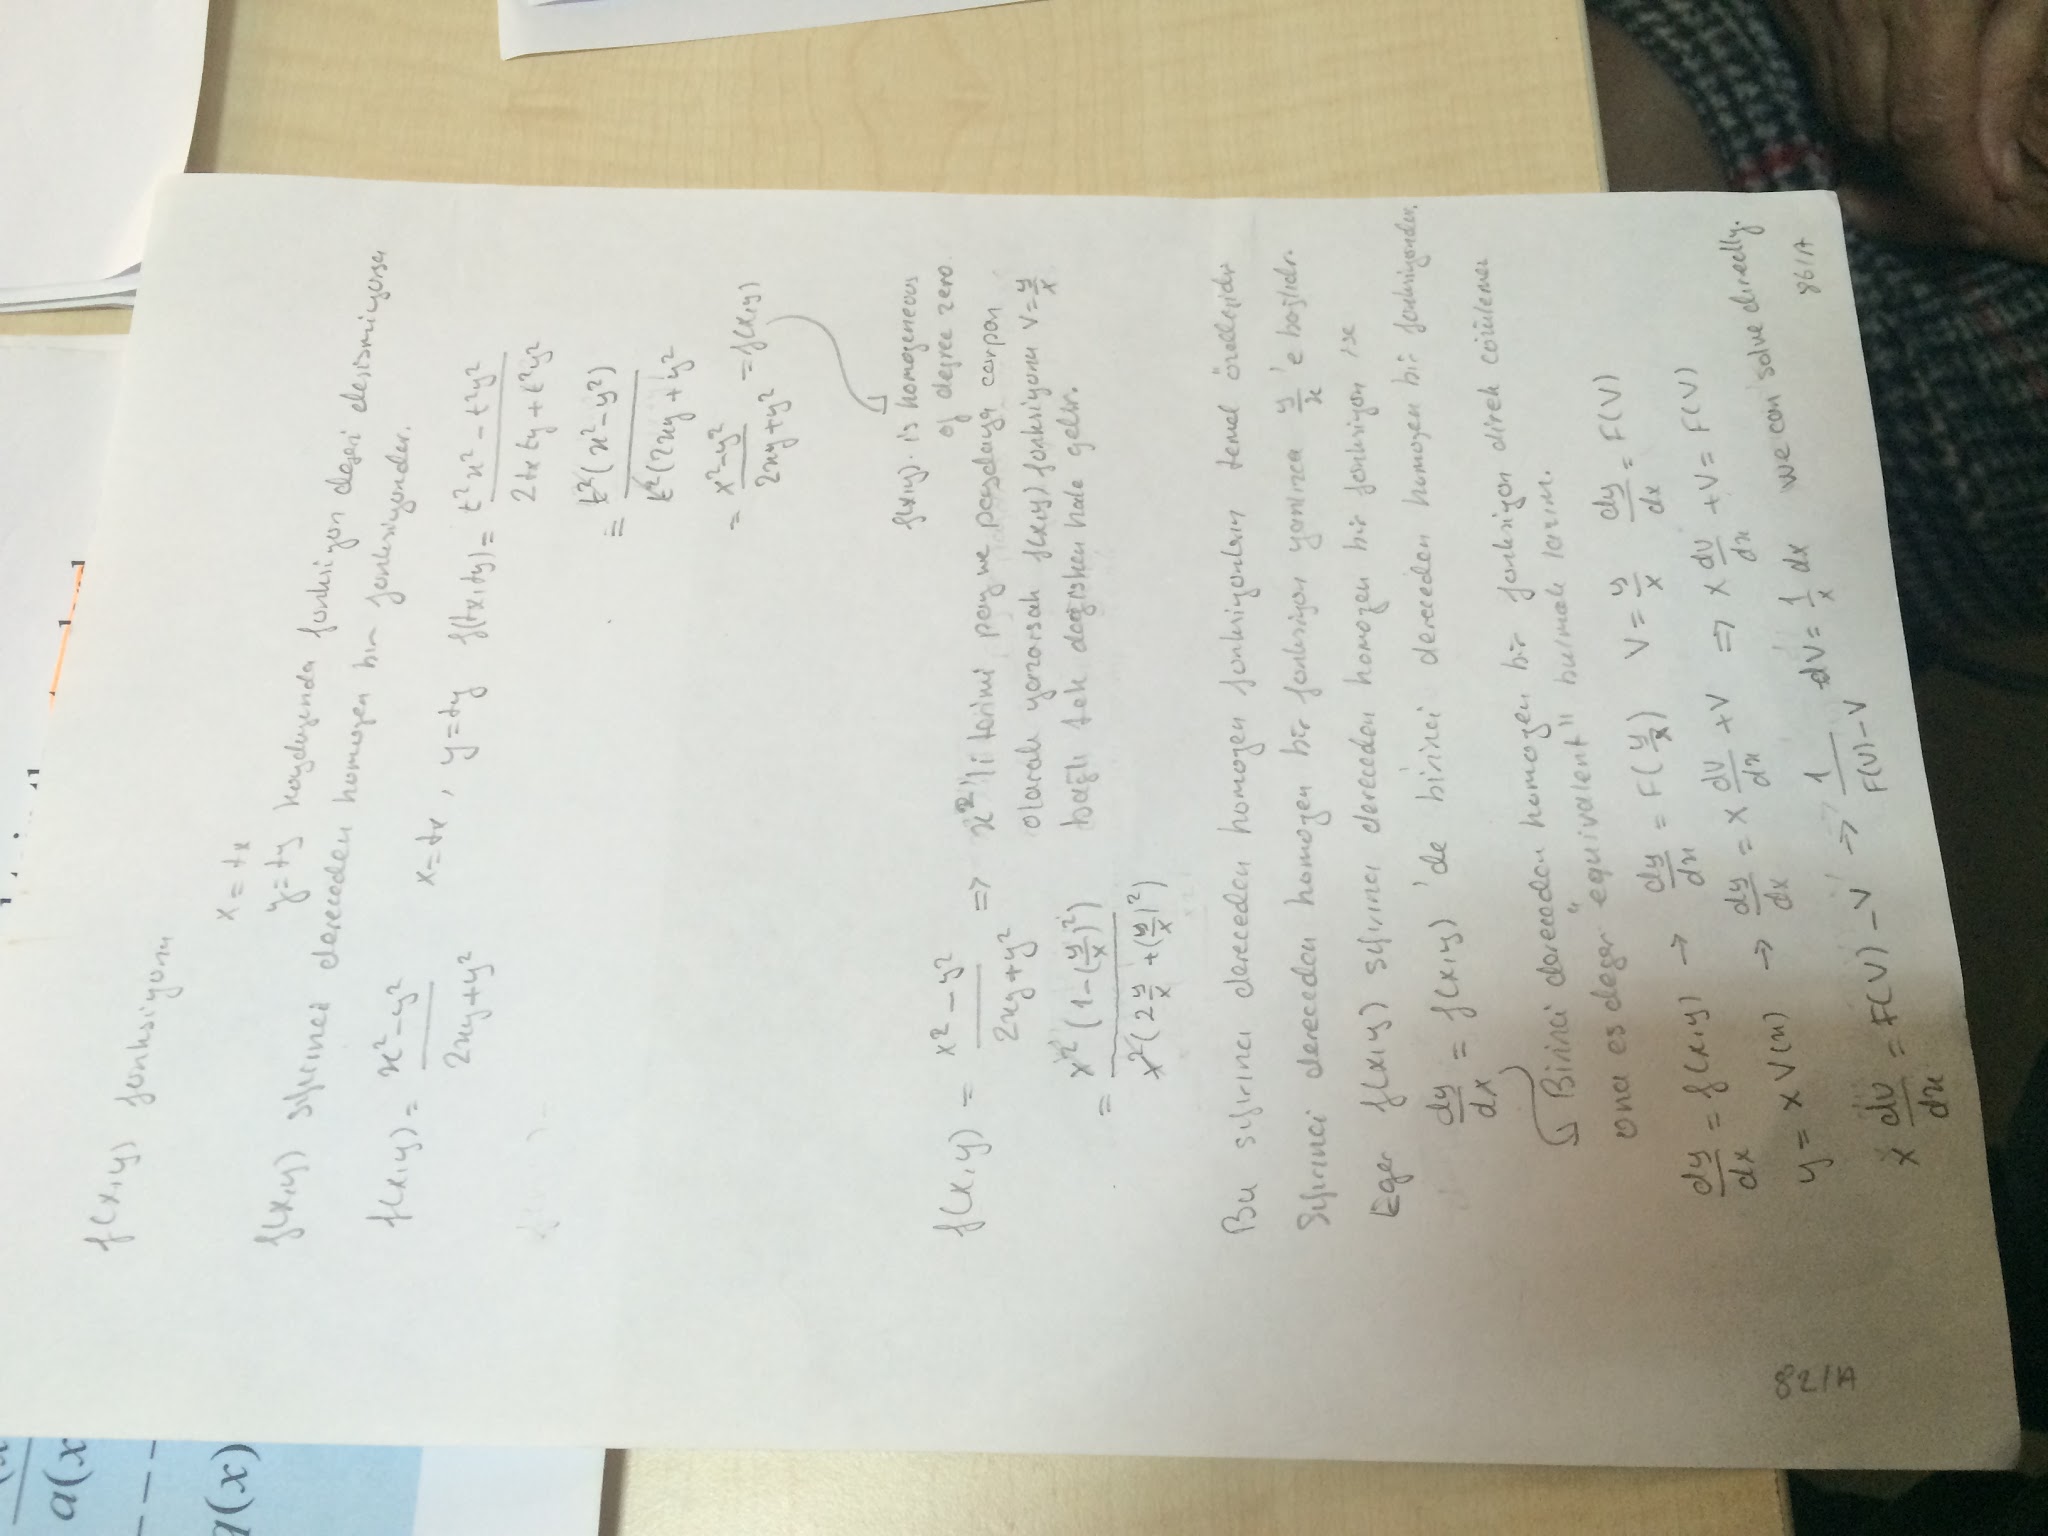 a(x
q(x)
f(x,y) fonksiyonu
x = tx
y = ty koyduğunda fonksiyon değeri değişmiyorsa
f(x,y) sıfırıncı dereceden homogen bir fonksiyondur.
f(x,y) = (x² - y²) / (2xy + y²)   x = tx, y = ty   f(tx,ty) = (t²x² - t²y²) / (2tx ty + t²y²)
= t²(x² - y²) / t²(2xy + y²
= (x² - y²) / (2xy + y²) = f(x,y)
f(x,y). is homogeneous
of degree zero.
f(x,y) = (x² - y²) / (2xy + y²) ⇒ x²'li terimi pay ve paydaya çarpan
olarak yazarsak f(x,y) fonksiyonu V = y/x
= x²(1 - (y/x)²) / x²(2 y/x + (y/x)²) bağlı tek değişken hale gelir.
Bu sıfırıncı dereceden homogen fonksiyonların temel özelliğidir
Sıfırıncı dereceden homogen bir fonksiyon yanlızca y/x 'e bağlıdır.
Eger f(x,y) sıfırıncı dereceden homogen bir fonksiyon ise
dy/dx = f(x,y) 'de birinci dereceden homogen bir fonksiyondur.
Birinci dereceden homogen bir fonksiyon direk çözülemez
ona es deger "equivalent" bulmak lazım.
dy/dx = f(x,y) → dy/dx = F(y/x)   V = y/x   dy/dx = F(V)
y = x V(x) → dy/dx = x dV/dx + V ⇒ x dV/dx + V = F(V)
x dV/dx = F(V) - V → 1/(F(V) - V) dV = 1/x dx   we can solve directly.
861A
821A